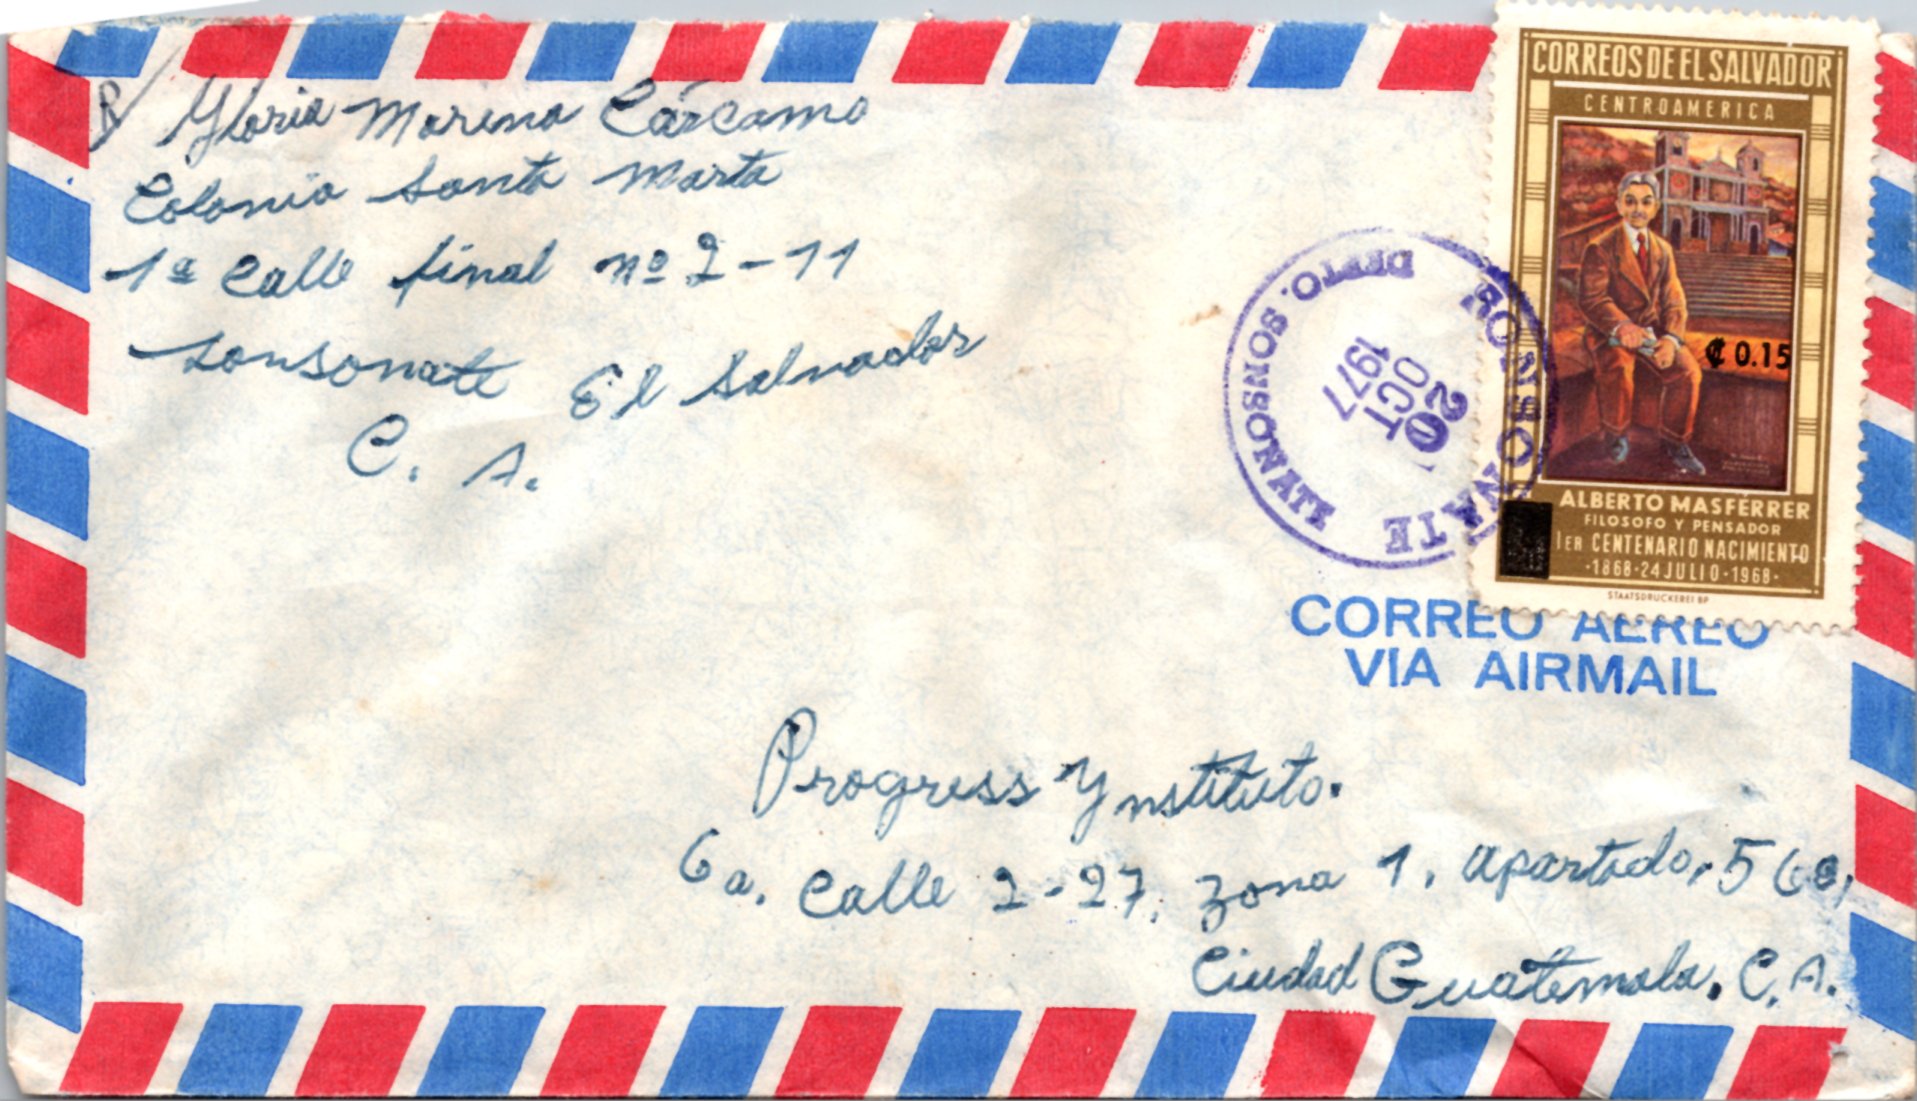 R/ Gloria Morena Cárcamo
Colonia Santa Marta
1ª Calle final nº 2-11
Sonsonate El Salvador
C. A.
CORREOS DE EL SALVADOR
CENTROAMERICA
₡ 0.15
ALBERTO MASFÉRRER
FILOSOFO Y PENSADOR
1ER CENTENARIO NACIMIENTO
·1868·24 JULIO·1968·
STAATSDRUCKEREI BP
SONSONATE
DEPTO. SONSONATE
20
OCT
1977
CORREO AEREO
VIA AIRMAIL
Progress Ynstituto.
6a. Calle 2-27, zona 1, apartado,
Ciudad Guatemala. C.A.